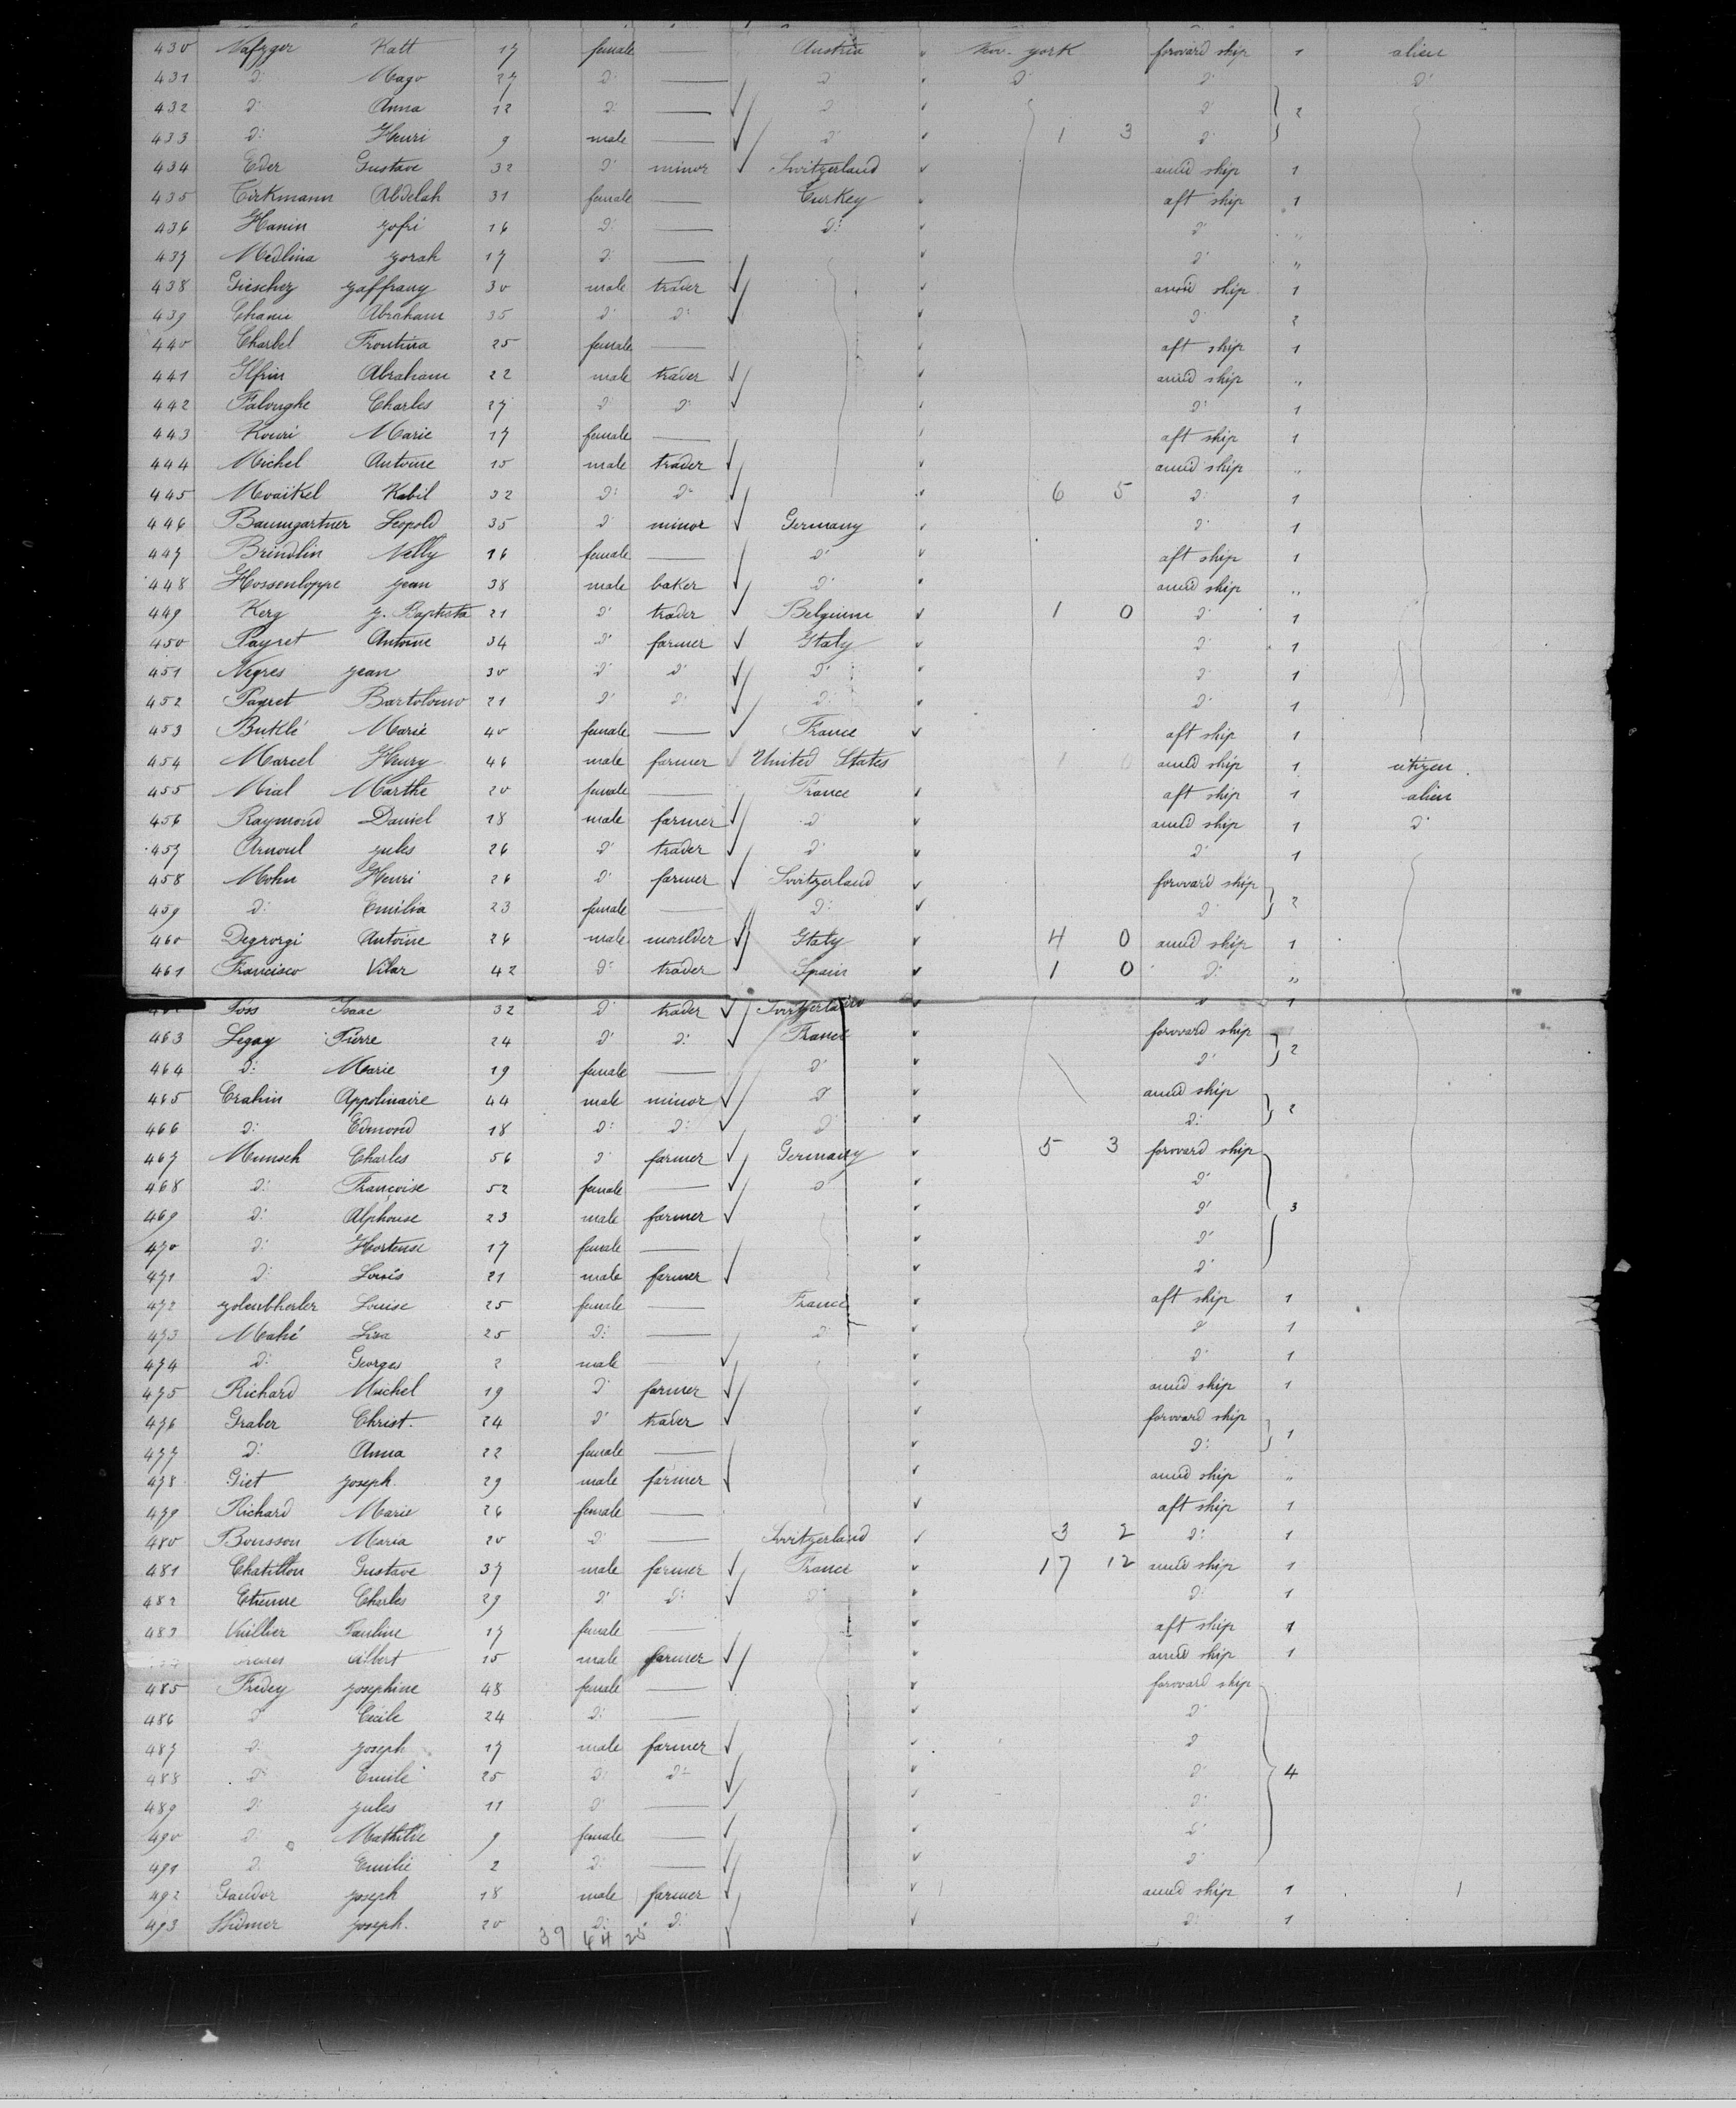 430 Nafzger Katt 17 female — Austria New-york forward ship 1 alien
431 d: Mago 27 d: — d: d: d: d:
432 d: Anna 12 d: — d: d: 2
433 d: Henri 9 male — d: 1 3 d:
434 Eder Gustave 32 d: minor Switzerland amid ship 1
435 Tirkmann Abdelah 31 female — Turkey aft ship 1
436 Hanin Jofri 16 d: — d: d: "
437 Medlina Jorah 17 d: — d: "
438 Gieschez Jaffrany 30 male trader amid ship 1
439 Chanu Abraham 35 d: d: d: 2
440 Charbel Frontina 25 female — aft ship 1
441 Ilfrin Abraham 22 male trader amid ship "
442 Falonghe Charles 27 d: d: d: 1
443 Kouri Marie 17 female — aft ship 1
444 Michel Antoine 15 male trader amid ship "
445 Moaïkel Kabil 32 d: d: 6 5 d: 1
446 Baumgartner Leopold 35 d: minor Germany d: 1
447 Brindlin Nelly 16 female — d: aft ship 1
448 Hossenloppe Jean 38 male baker d: amid ship "
449 Kerg J. Baptista 21 d: trader Belgium 1 0 d: 1
450 Payret Antoine 34 d: farmer Italy d: 1
451 Negres Jean 30 d: d: d: d: 1
452 Payret Bartolomo 21 d: d: d: d: 1
453 Buklé Marie 40 female — France aft ship 1
454 Marcel Henry 46 male farmer United States 1 0 amid ship 1 citizen
455 Mial Marthe 20 female — France aft ship 1 alien
456 Raymond Daniel 18 male farmer d: amid ship 1 d:
457 Arnoul Jules 26 d: trader d: d: 1
458 Mohn Henri 26 d: farmer Switzerland forward ship
459 d: Emilia 23 female — d: d: 2
460 Degrorgi Antoine 26 male moulder Italy 4 0 amid ship 1
461 Francisco Vilar 42 d: trader Spain 1 0 d: "
Isaac 32 d: trader Switzerland d: 1
463 Legay Pierre 24 d: d: France forward ship
464 d: Marie 19 female — d: d: 2
465 Crahin Appolinaire 44 male minor d: amid ship
466 d: Edmond 18 d: d: d: d: 2
467 Munsch Charles 56 d: farmer Germany 5 3 forward ship
468 d: Françoise 52 female — d: d:
469 d: Alphonse 23 male farmer d: 3
470 d: Hortense 17 female — d:
471 d: Louis 21 male farmer d:
472 Louise 25 female — France aft ship 1
473 Mahé Lisa 25 d: — d: d: 1
474 d: Georges 2 male — d: 1
475 Richard Michel 19 d: farmer amid ship 1
476 Graber Christ. 24 d: trader forward ship
477 d: Anna 22 female — d: 1
478 Giet Joseph 29 male farmer amid ship "
479 Richard Marie 26 female — aft ship 1
480 Bousson Maria 20 d: — Switzerland 3 2 d: 1
481 Chatillon Gustave 37 male farmer France 17 12 amid ship 1
482 Etienne Charles 29 d: d: d: d: 1
483 Vuillier Pauline 17 female aft ship 1
Albert 15 male farmer amid ship 1
485 Fridey Josephine 48 female — forward ship
486 d: Cécile 24 d: — d:
487 d: Joseph 17 male farmer d:
488 d: Emile 25 d: d: d: 4
489 d: Jules 11 d: — d:
490 d: Mathilde 9 female — d:
491 d: Emilie 2 d: — d:
492 Gandor Joseph 18 male farmer amid ship 1
493 Widmer Joseph. 20 d: d: d: 1
39 64 25